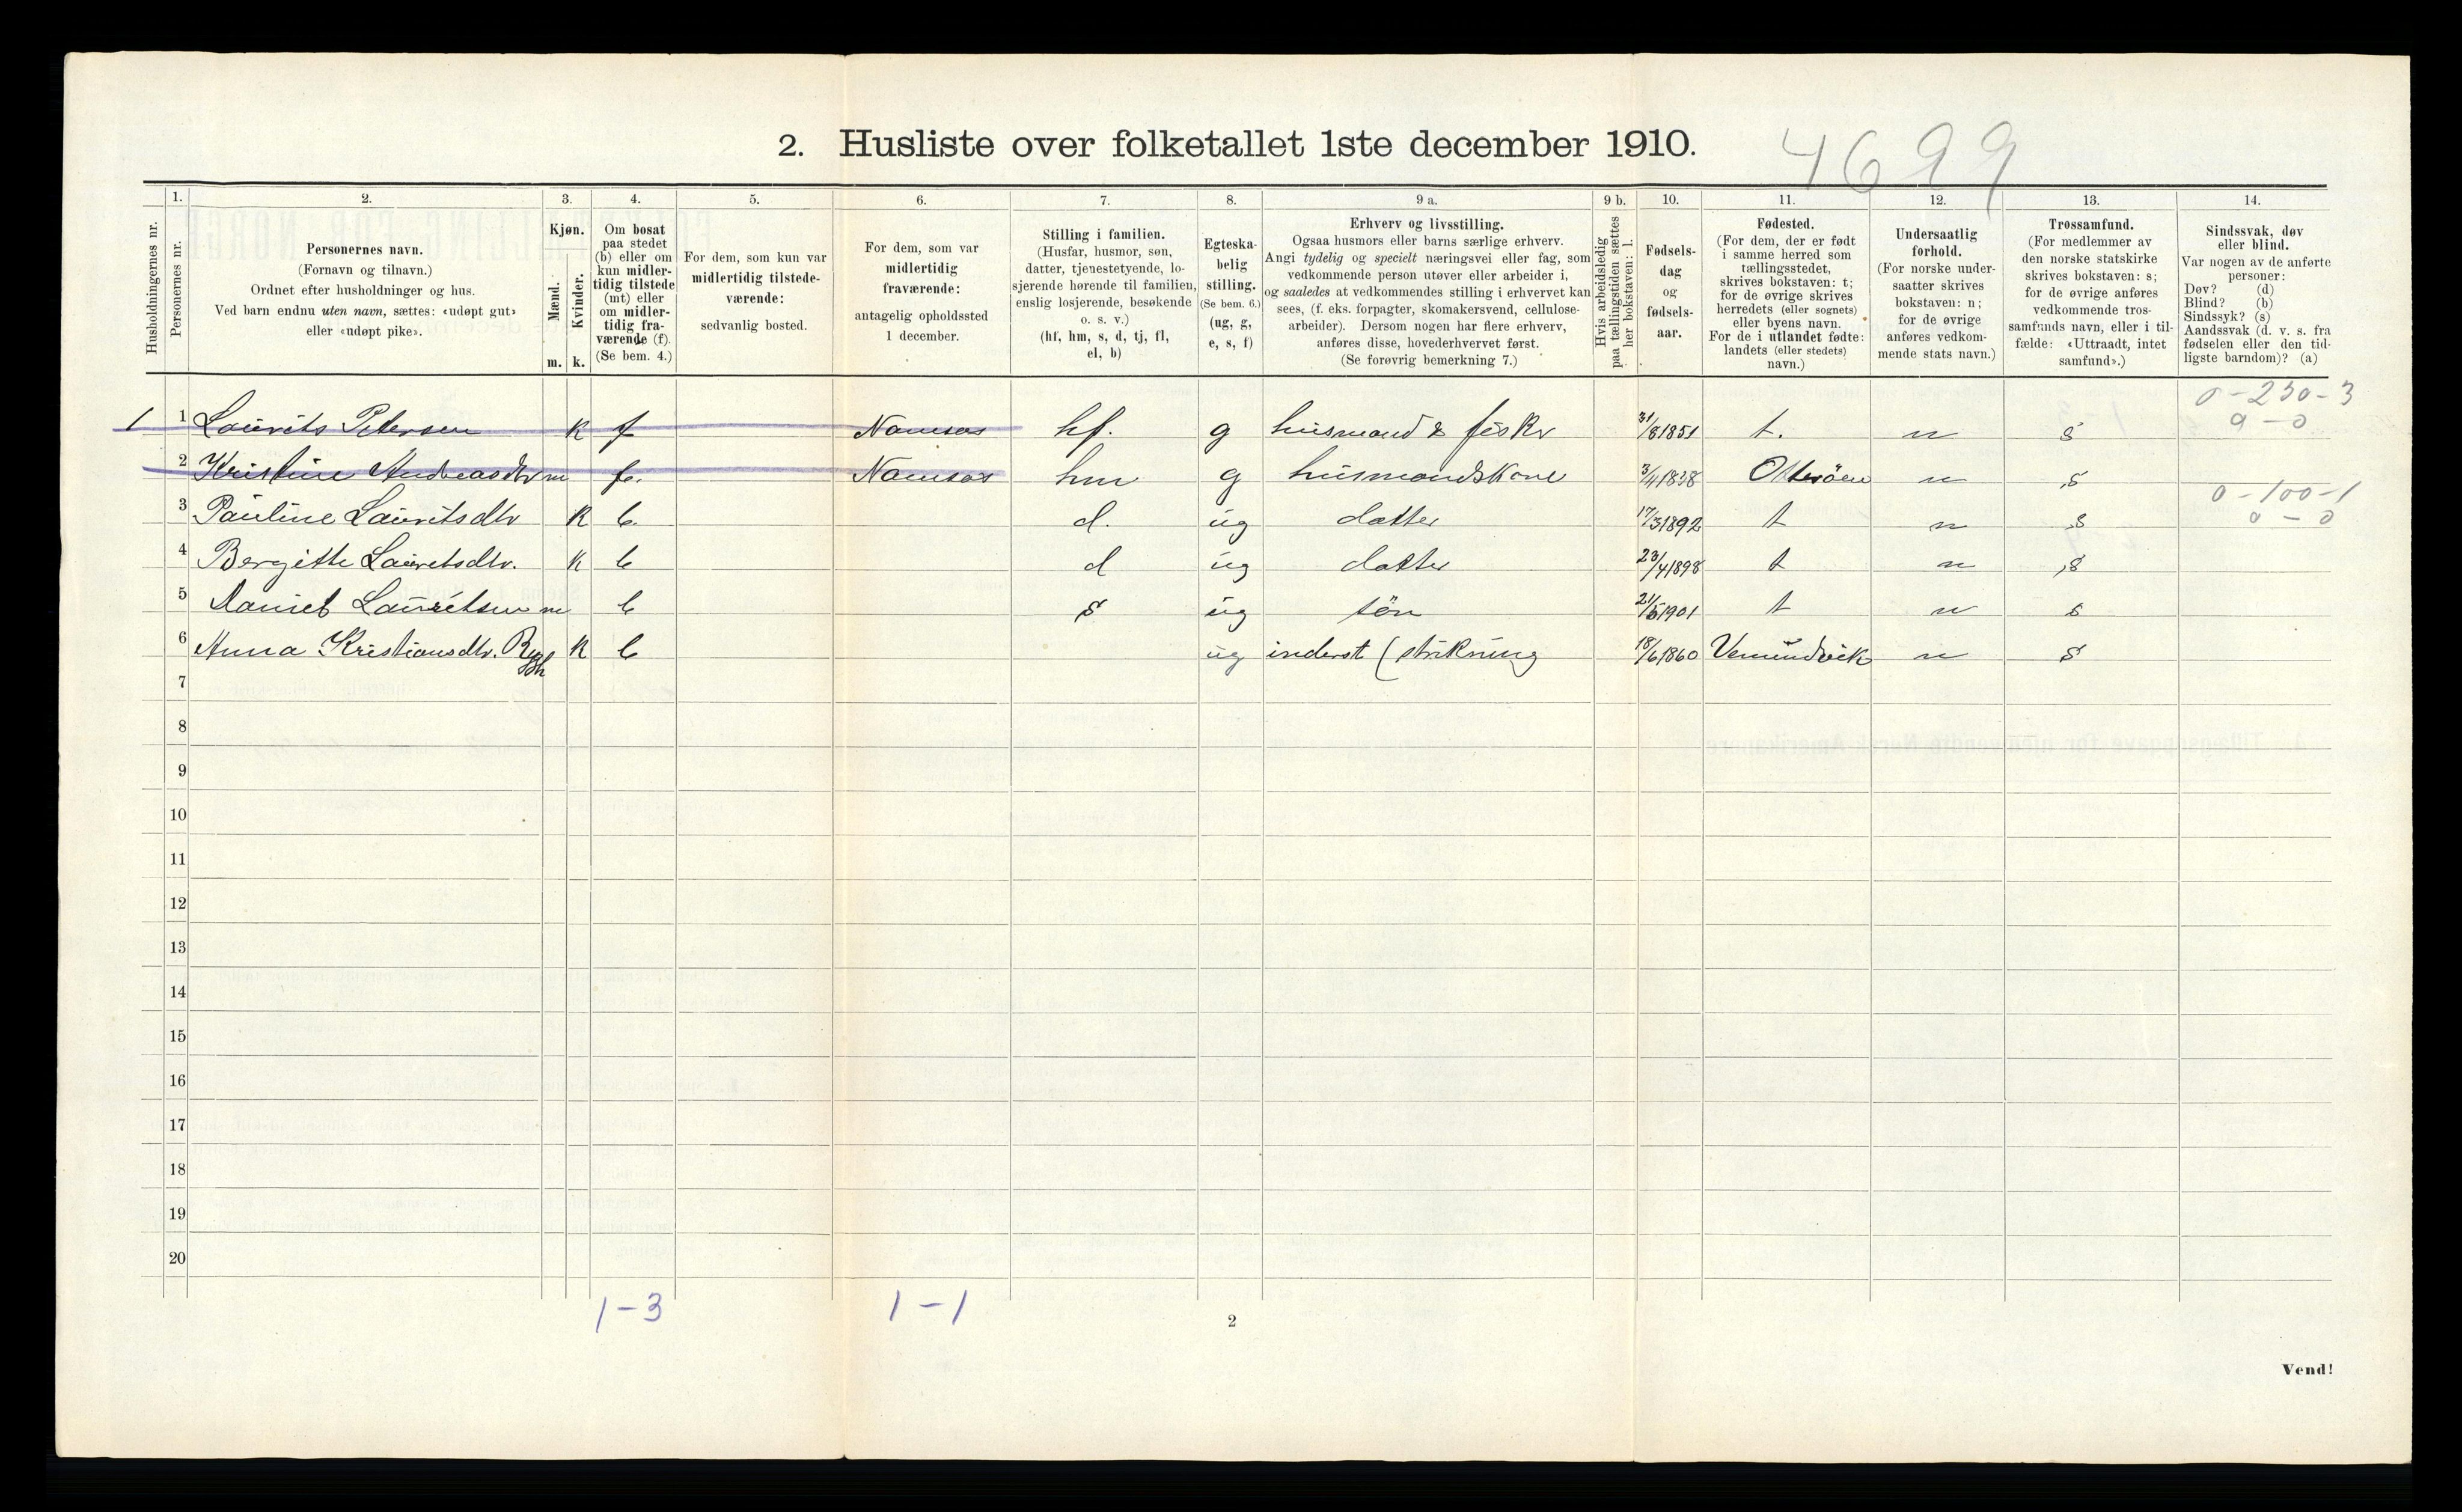 2. Husliste over folketallet 1ste december 1910.
4699
Husholdningernes nr.
1. Personernes nr.
2. Personernes navn.
(Fornavn og tilnavn.)
Ordnet efter husholdninger og hus.
Ved barn endnu uten navn, sættes: «udøpt gut»
eller «udøpt pike».
3. Kjøn.
Mænd. m.
Kvinder. k.
4. Om bosat
paa stedet
(b) eller om
kun midler-
tidig tilstede
(mt) eller
om midler-
tidig fra-
værende (f).
(Se bem. 4.)
5. For dem, som kun var
midlertidig tilstede-
værende:
sedvanlig bosted.
6. For dem, som var
midlertidig
fraværende:
antagelig opholdssted
1 december.
7. Stilling i familien.
(Husfar, husmor, søn,
datter, tjenestetyende, lo-
sjerende hørende til familien,
enslig losjerende, besøkende
o. s. v.)
(hf, hm, s, d, tj, fl,
el, b)
8. Egteska-
belig
stilling.
(Se bem. 6.)
(ug, g,
e, s, f)
9 a. Erhverv og livsstilling.
Ogsaa husmors eller barns særlige erhverv.
Angi tydelig og specielt næringsvei eller fag, som
vedkommende person utøver eller arbeider i,
og saaledes at vedkommendes stilling i erhvervet kan
sees, (f. eks. forpagter, skomakersvend, cellulose-
arbeider). Dersom nogen har flere erhverv,
anføres disse, hovederhvervet først.
(Se forøvrig bemerkning 7.)
9 b. Hvis arbeidsledig
paa tællingstiden sættes
her bokstaven: l.
10. Fødsels-
dag
og
fødsels-
aar.
11. Fødested.
(For dem, der er født
i samme herred som
tællingsstedet,
skrives bokstaven: t;
for de øvrige skrives
herredets (eller sognets)
eller byens navn.
For de i utlandet fødte:
landets (eller stedets)
navn.)
12. Undersaatlig
forhold.
(For norske under-
saatter skrives
bokstaven: n;
for de øvrige
anføres vedkom-
mende stats navn.)
13. Trossamfund.
(For medlemmer av
den norske statskirke
skrives bokstaven: s;
for de øvrige anføres
vedkommende tros-
samfunds navn, eller i til-
fælde: «Uttraadt, intet
samfund».)
14. Sindssvak, døv
eller blind.
Var nogen av de anførte
personer:
Døv? (d)
Blind? (b)
Sindssyk? (s)
Aandssvak (d. v. s. fra
fødselen eller den tid-
ligste barndom)? (a)
0-230-3
0-0
1 1 Laurits Petersen K f Namsos hf. g husmand & fisker 31/8 1851 t. n s
2 Kristine Andreasdtr m f. Namsos hm g husmandskone 3/4 1838 Otterøen n s
0-100-1
0-0
3 Pauline Lauritsdtr K b. d. ug datter 17/3 1892 t n s
4 Bergitte Lauritsdtr. K b d ug datter 23/4 1898 t n s
5 Daniel Lauritsen m b s ug søn 21/5 1901 t n s
6 Anna Kristiansdtr. Rygh K b ug inderst (strikning 18/6 1860 Vemundvik n s
7
8
9
10
11
12
13
14
15
16
17
18
19
20
1-3 1-1
2
Vend!